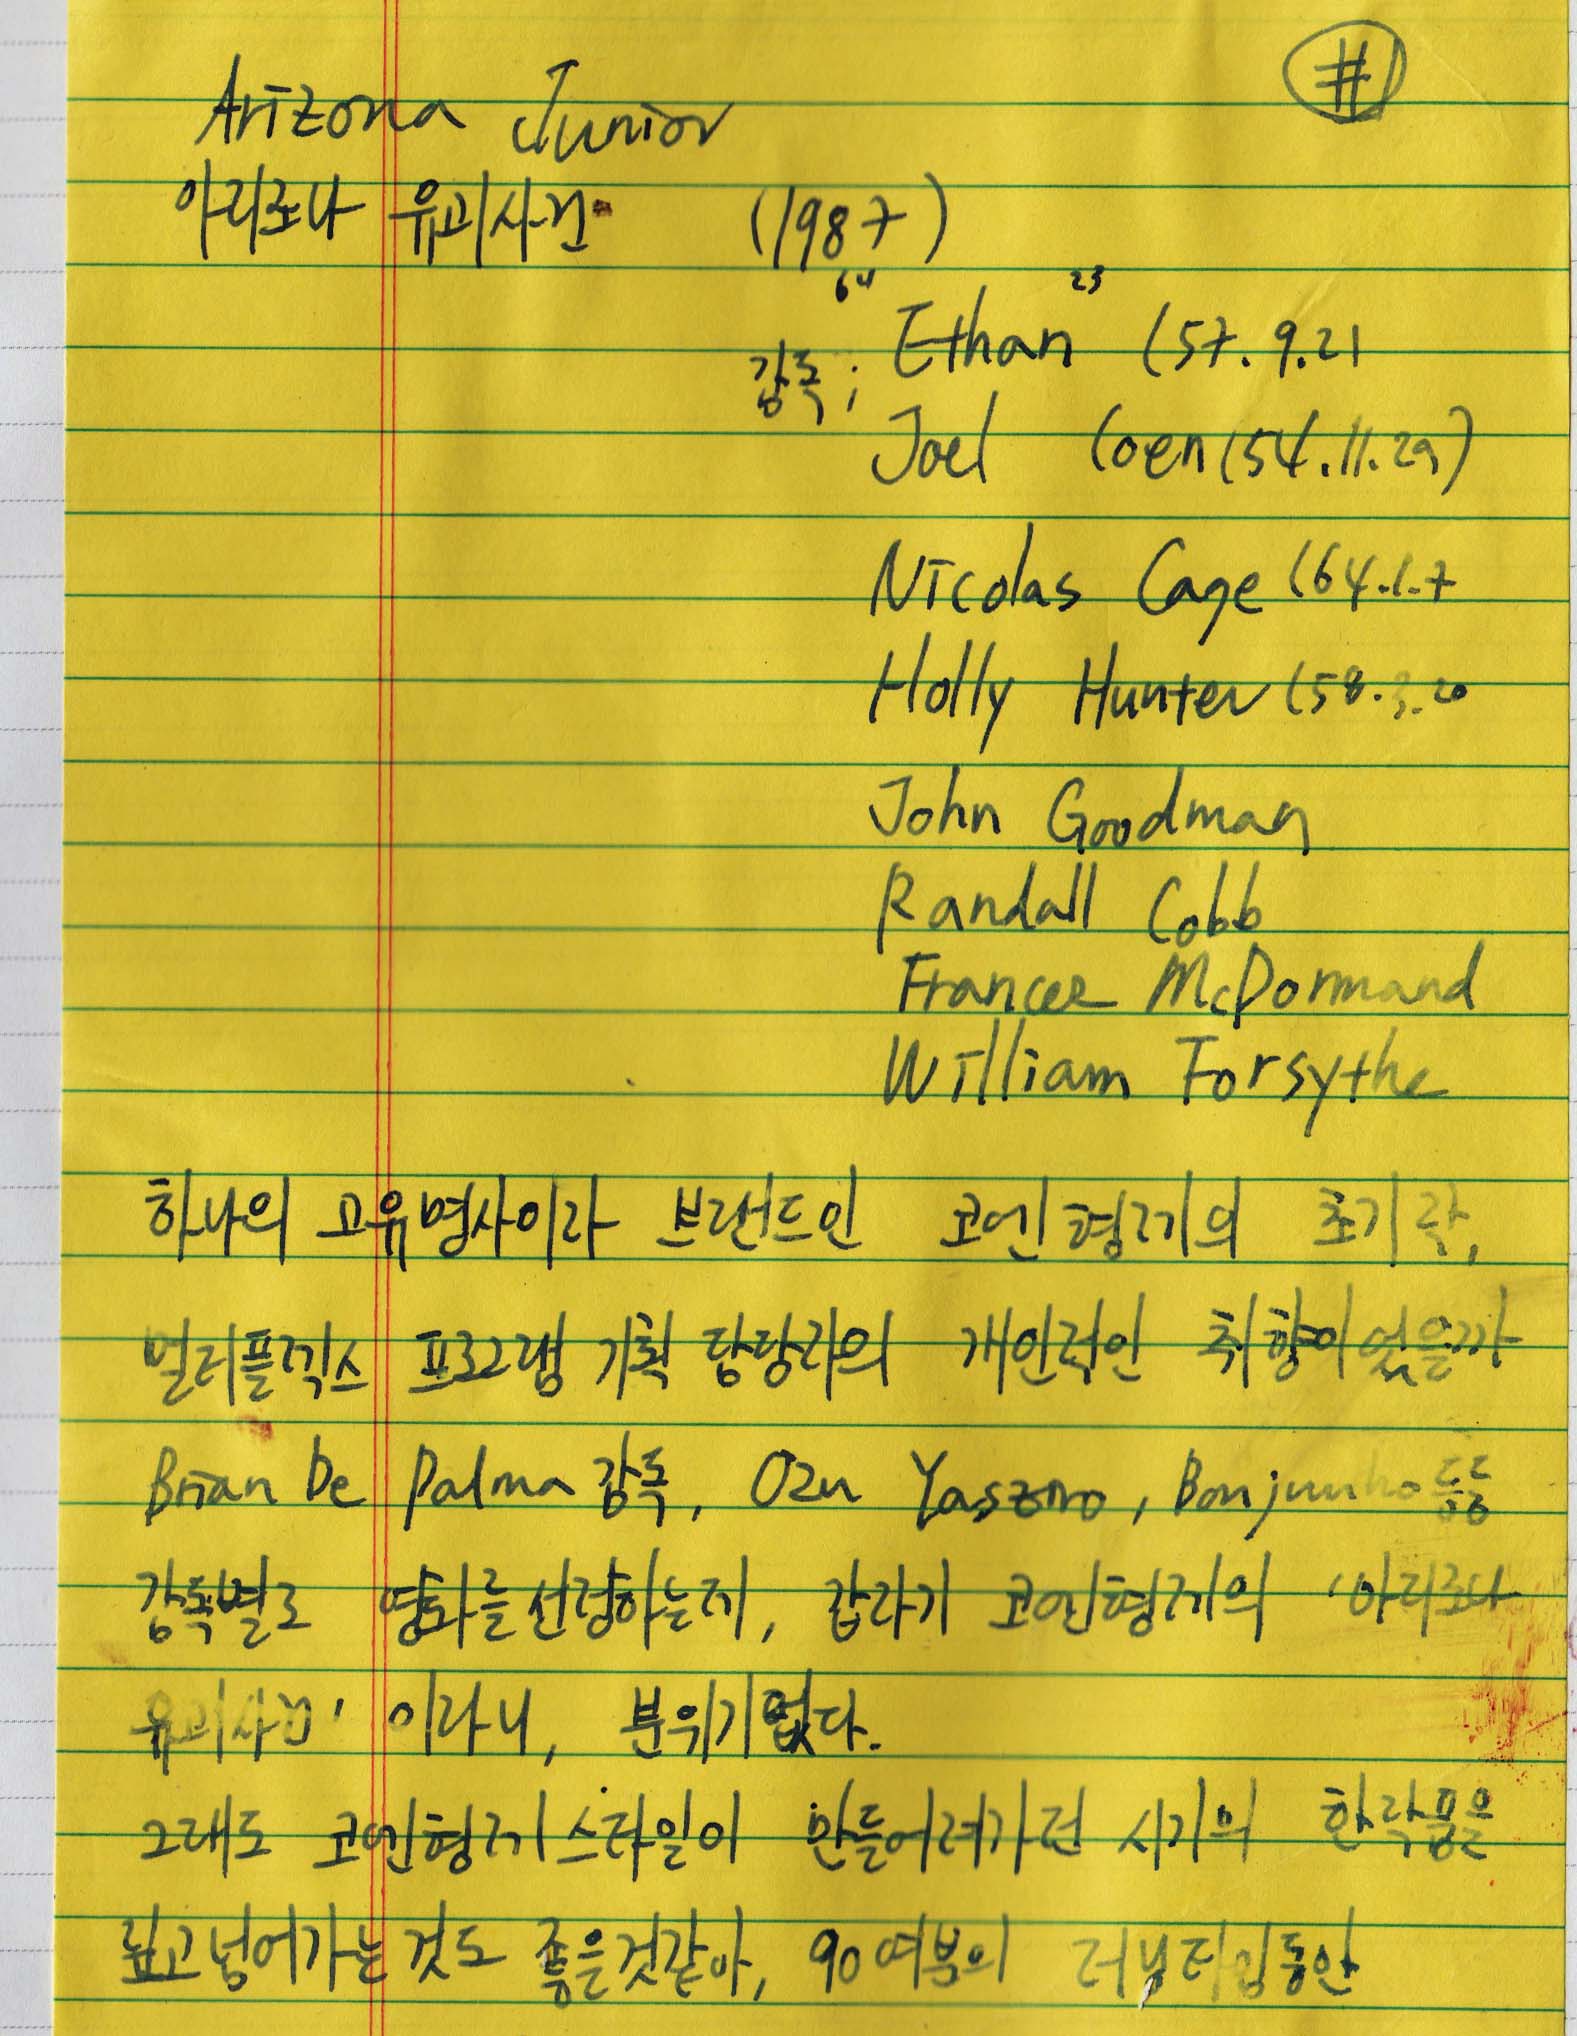 #1
Arizona Junior
아리조나 유괴사건 (1987)
64 23
감독; Ethan (57.9.21
Joel Coen (54.11.29)
Nicolas Cage (64.1.7
Holly Hunter (58.3.20
John Goodman
Randall Cobb
Frances McDormand
William Forsythe
하나의 고유명사이자 브랜드인 코엔형제의 초기작,
멀티플렉스 프로그램 기획 담당자의 개인적인 취향이었을까
Brian De Palma 감독, Ozu Yaszro, Bonjunho 등등
감독별로 영화를 선정하는데, 갑자기 코엔형제의 '아리조나
유괴사건' 이라니, 분위기 없다.
그래도 코엔형제 스타일이 만들어져가던 시기의 한 작품을
짚고 넘어가는 것도 좋을것같아, 90여분의 러닝타임동안